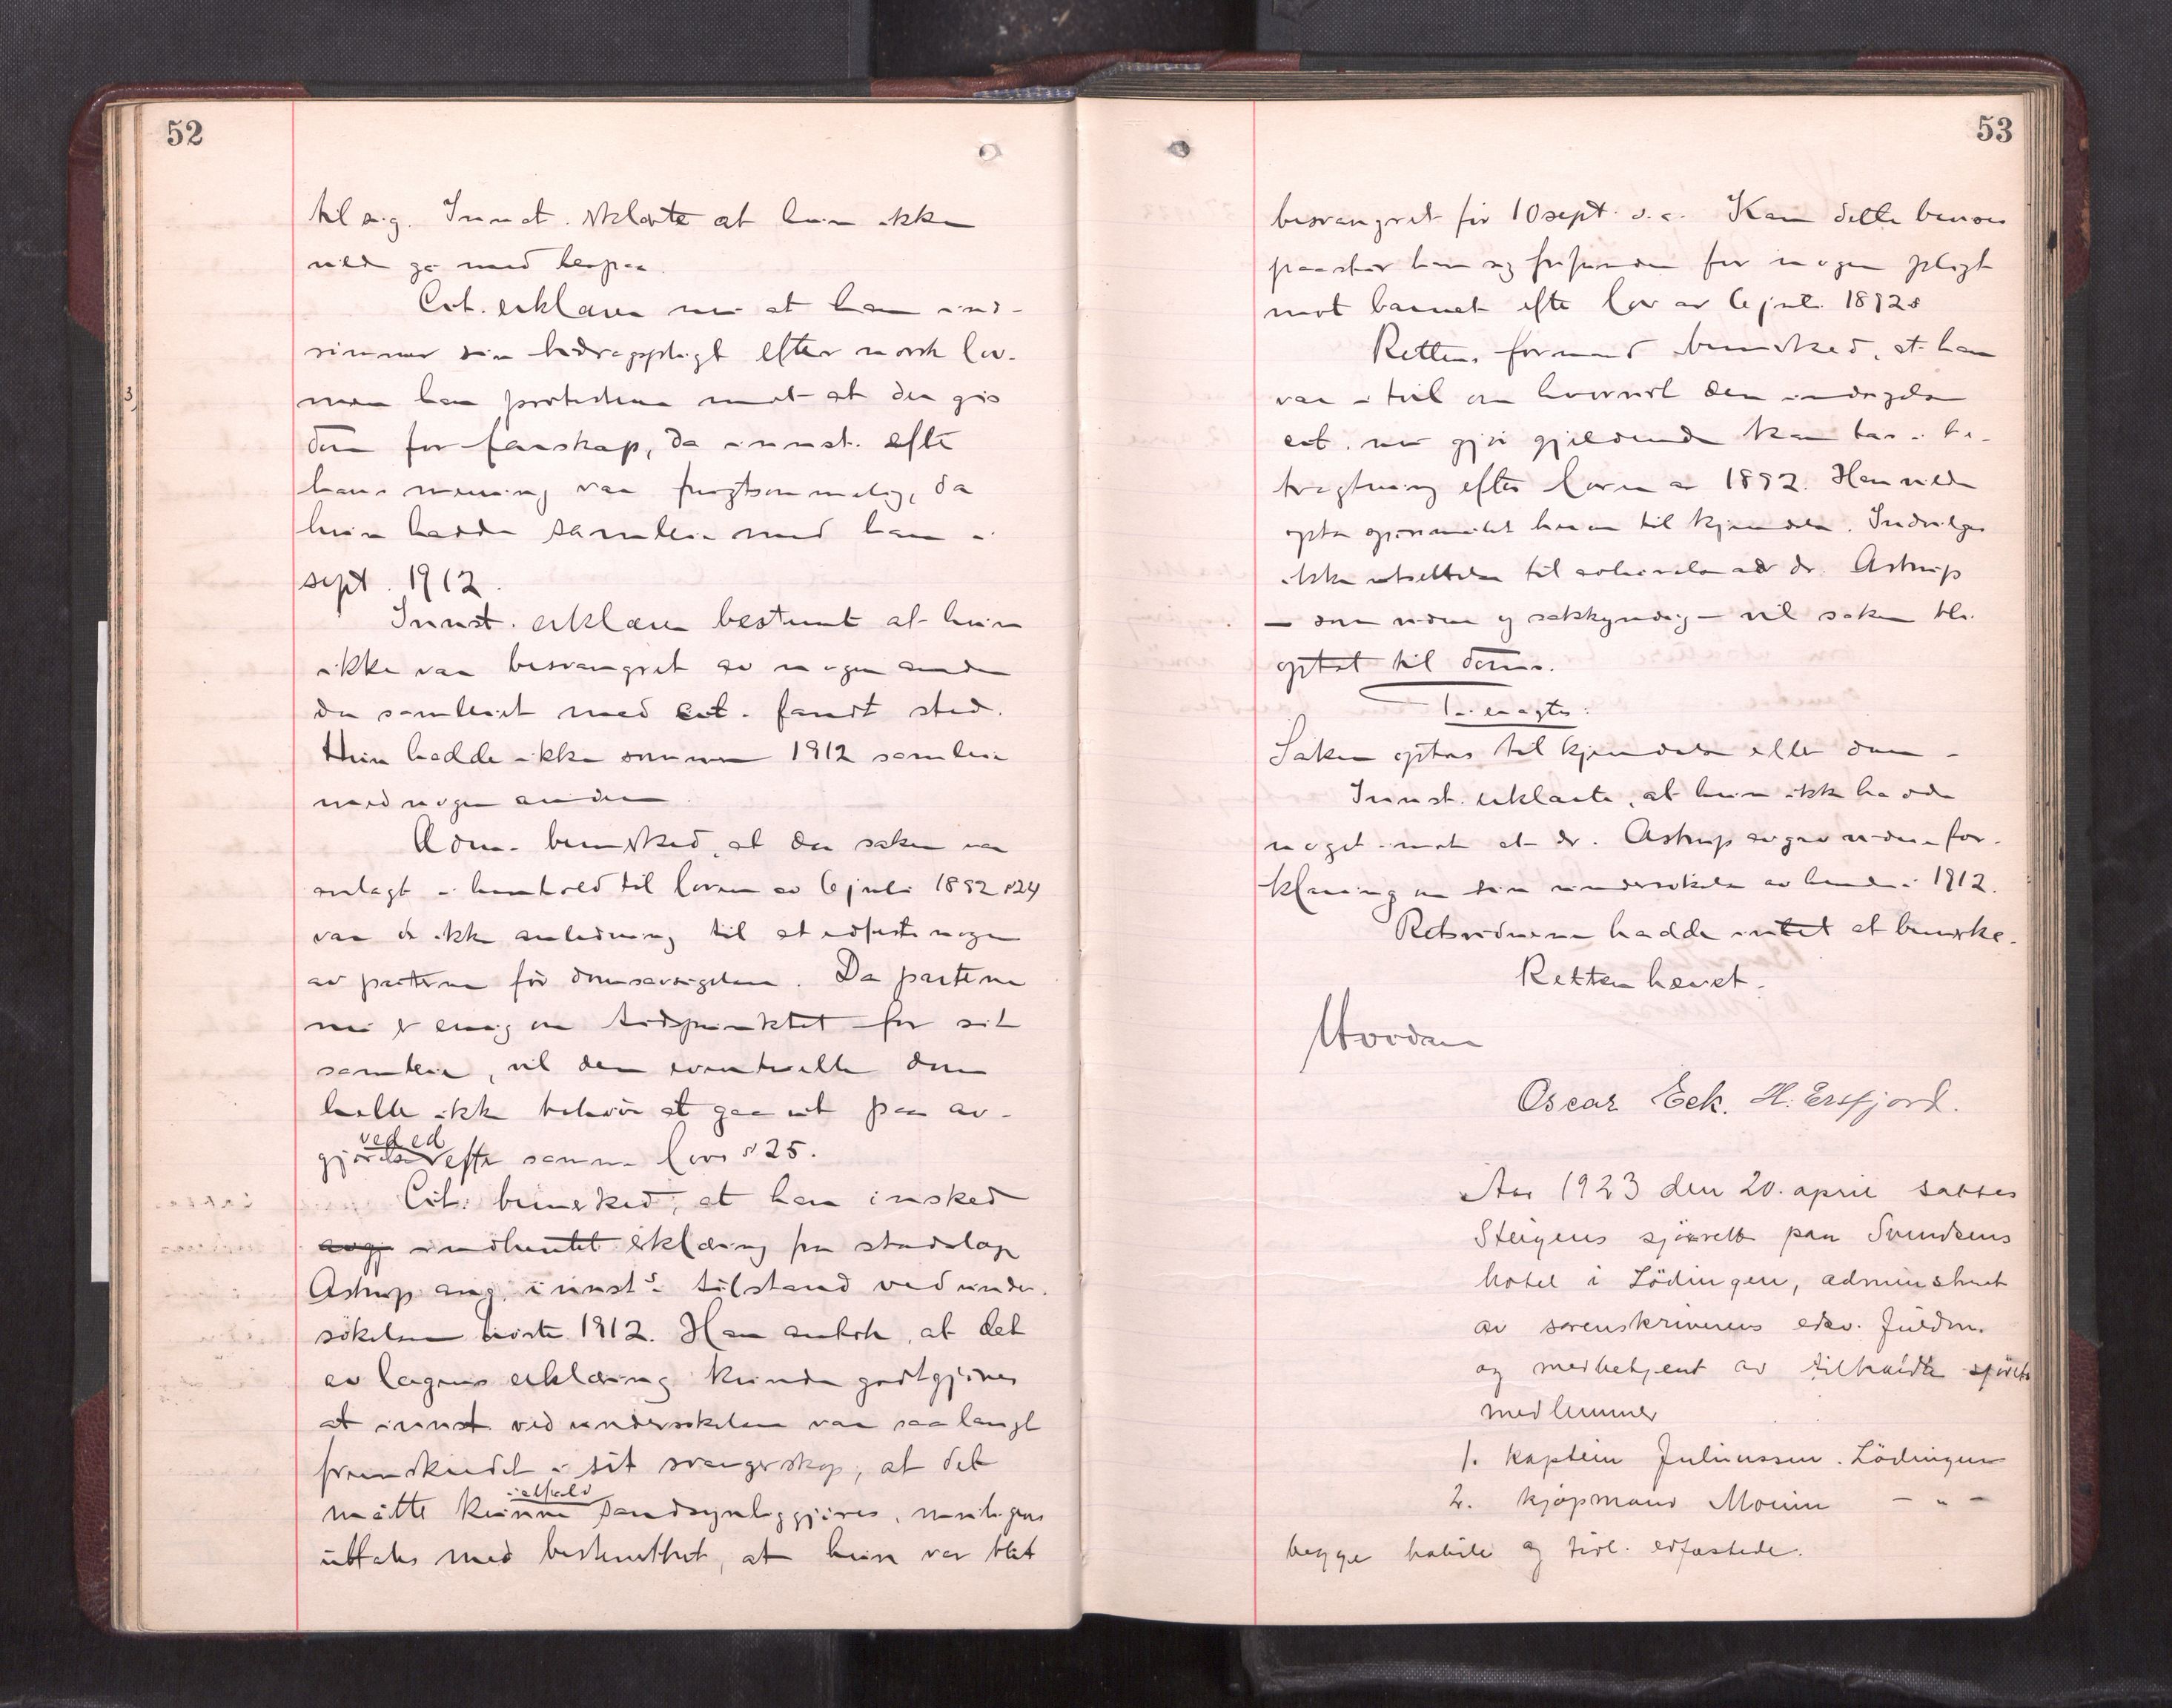 52
til sig. Innst. erklærte at hun ikke
vilde gå med herpaa.
Cit. erklærer nu at han ind-
rømmer sin bidragspligt efter norsk lov.
men han protesterer mot at der gis
dom for farskap, da innst. efter
hans mening var frugtsommelig, da
hun hadde samleie med ham i
sept. 1912.
Innst. erklærer bestemt at hun
ikke var besvangret av nogen anden
da samleiet med cit. fandt sted.
Hun hadde ikke sommeren 1912 samleie
med nogen anden.
Adm. bemerked, at da saken var
anlagt i henhold til loven av 6 juli 1892 § 24
var der ikke anledning til at edfeste nogen
av parterne før domsavsigelsen. Da parterne
nu er enig om tidspunktet for sit
samleie, vil den eventuelle dom
heller ikke behøve at gaa ut paa av-
ved ed
gjørelse efter samme lovs § 25.
Cit. bemerked, at han ønsked
avgj indhentet erklæring fra stadslæge
Astrup ang. innst's tilstand ved under-
søkelsen høsten 1912. Han antok, at det
av lægens erklæring kunde godtgjøres
at innst. ved undersøkelsen var saa langt
fremskredet i sit svangerskap, at det
ialfald
måtte kunne sandsynliggjøres, muligens
uttales med bestemthet, at hun var blit
53
besvangret før 10 sept. s. a. Kan dette bevises
paastaar han sig frifunden for nogen pligt
mot barnet efter lov av 6 juli 1892 §
Rettens formand bemerked, at han
var i tvil om hvorvidt den indsigelse
cit. nu gjør gjældende kan tas i be-
tragtning efter loven av 1892. Han vilde
opta spørsmålet herom til kjendelse. Indvilges
ikke utsættelse til avhørelse av dr. Astrup
— som vidne og sakkyndig — vil saken bli
optat til doms.
Saken optas til kjendelse eller dom.
Innst. erklærte, at hun ikke hadde
noget imot at dr. Astrup avgav vidnefor-
klaring om sin undersøkelse av hende i 1912.
Retsvidnerne hadde intet at bemerke.
Retten hævet.
Oscar Eek. H. Ersfjord.
Aar 1923 den 20. april sattes
Steigens sjørett paa Svendsens
hotel i Lödingen, administrert
av sorenskriverens edsv. fuldm.
og medbetjent av tilkaldte sjørets
medlemmer
1. kaptein Juliussen. Lödingen
2. kjøpmand Moum — " —
begge habile og tidl. edfæstede.